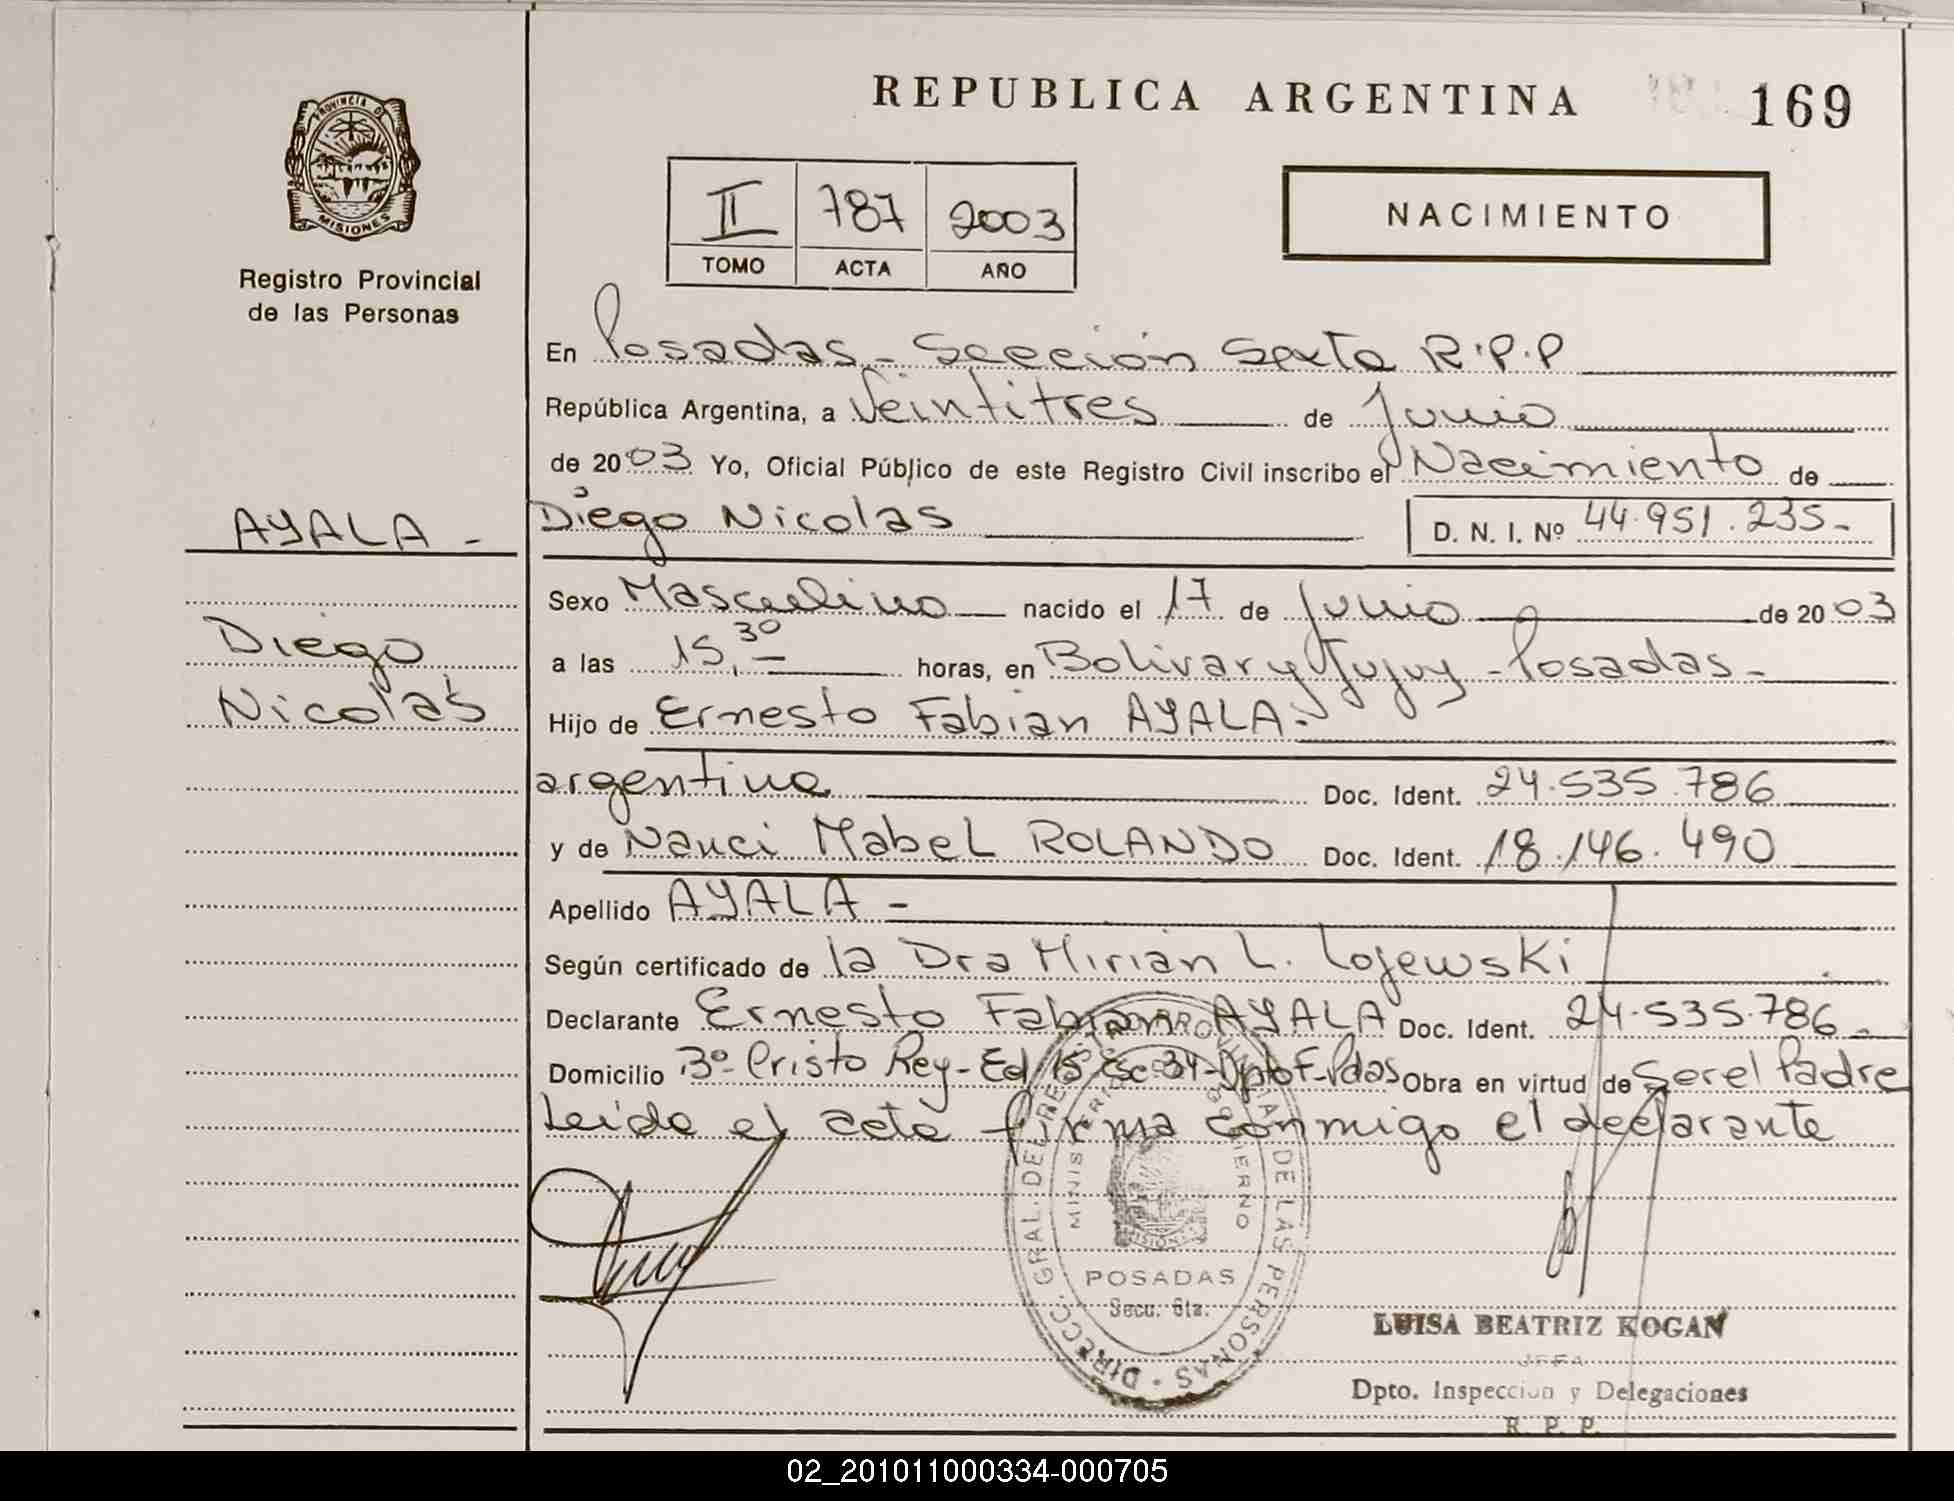 REPUBLICA ARGENTINA
169
PROVINCIA DE
MISIONES
Registro Provincial
de las Personas
II 787 2003
TOMO ACTA AÑO
NACIMIENTO
En Posadas - Sección Sexta R.P.P
República Argentina, a Veintitres de Junio
de 2003 Yo, Oficial Público de este Registro Civil inscribo el Nacimiento de
AYALA -
Diego Nicolas
D. N. I. Nº 44.951.235-
Diego
Nicolás
Sexo Masculino nacido el 17 de Junio de 2003
a las 15,30 horas, en Bolivar y Jujuy - Posadas -
Hijo de Ernesto Fabian AYALA -
argentino Doc. Ident. 24.535.786
y de Nanci Mabel ROLANDO Doc. Ident. 18.146.490
Apellido AYALA -
Según certificado de la Dra Mirian L. Lojewski
Declarante Ernesto Fabian AYALA Doc. Ident. 24.535.786 -
Domicilio Bº Cristo Rey - Ed 15 Esc 34 - Dpto F - Pdas Obra en virtud de Ser el Padre
Leido el acta firma conmigo el declarante
DIRECC. GRAL. DEL REGISTRO PROVINCIAL DE LAS PERSONAS
MINISTERIO DE GOBIERNO
MISIONES
POSADAS
Secc. 6ta.
LUISA BEATRIZ KOGAN
JEFA
Dpto. Inspeccion y Delegaciones
R. P. P.
02_201011000334-000705